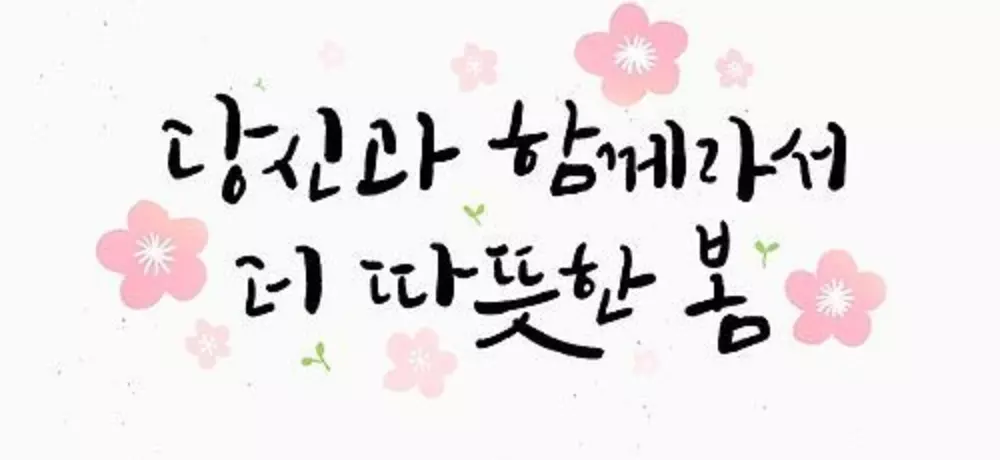 당신과 함께라서
더 따뜻한 봄